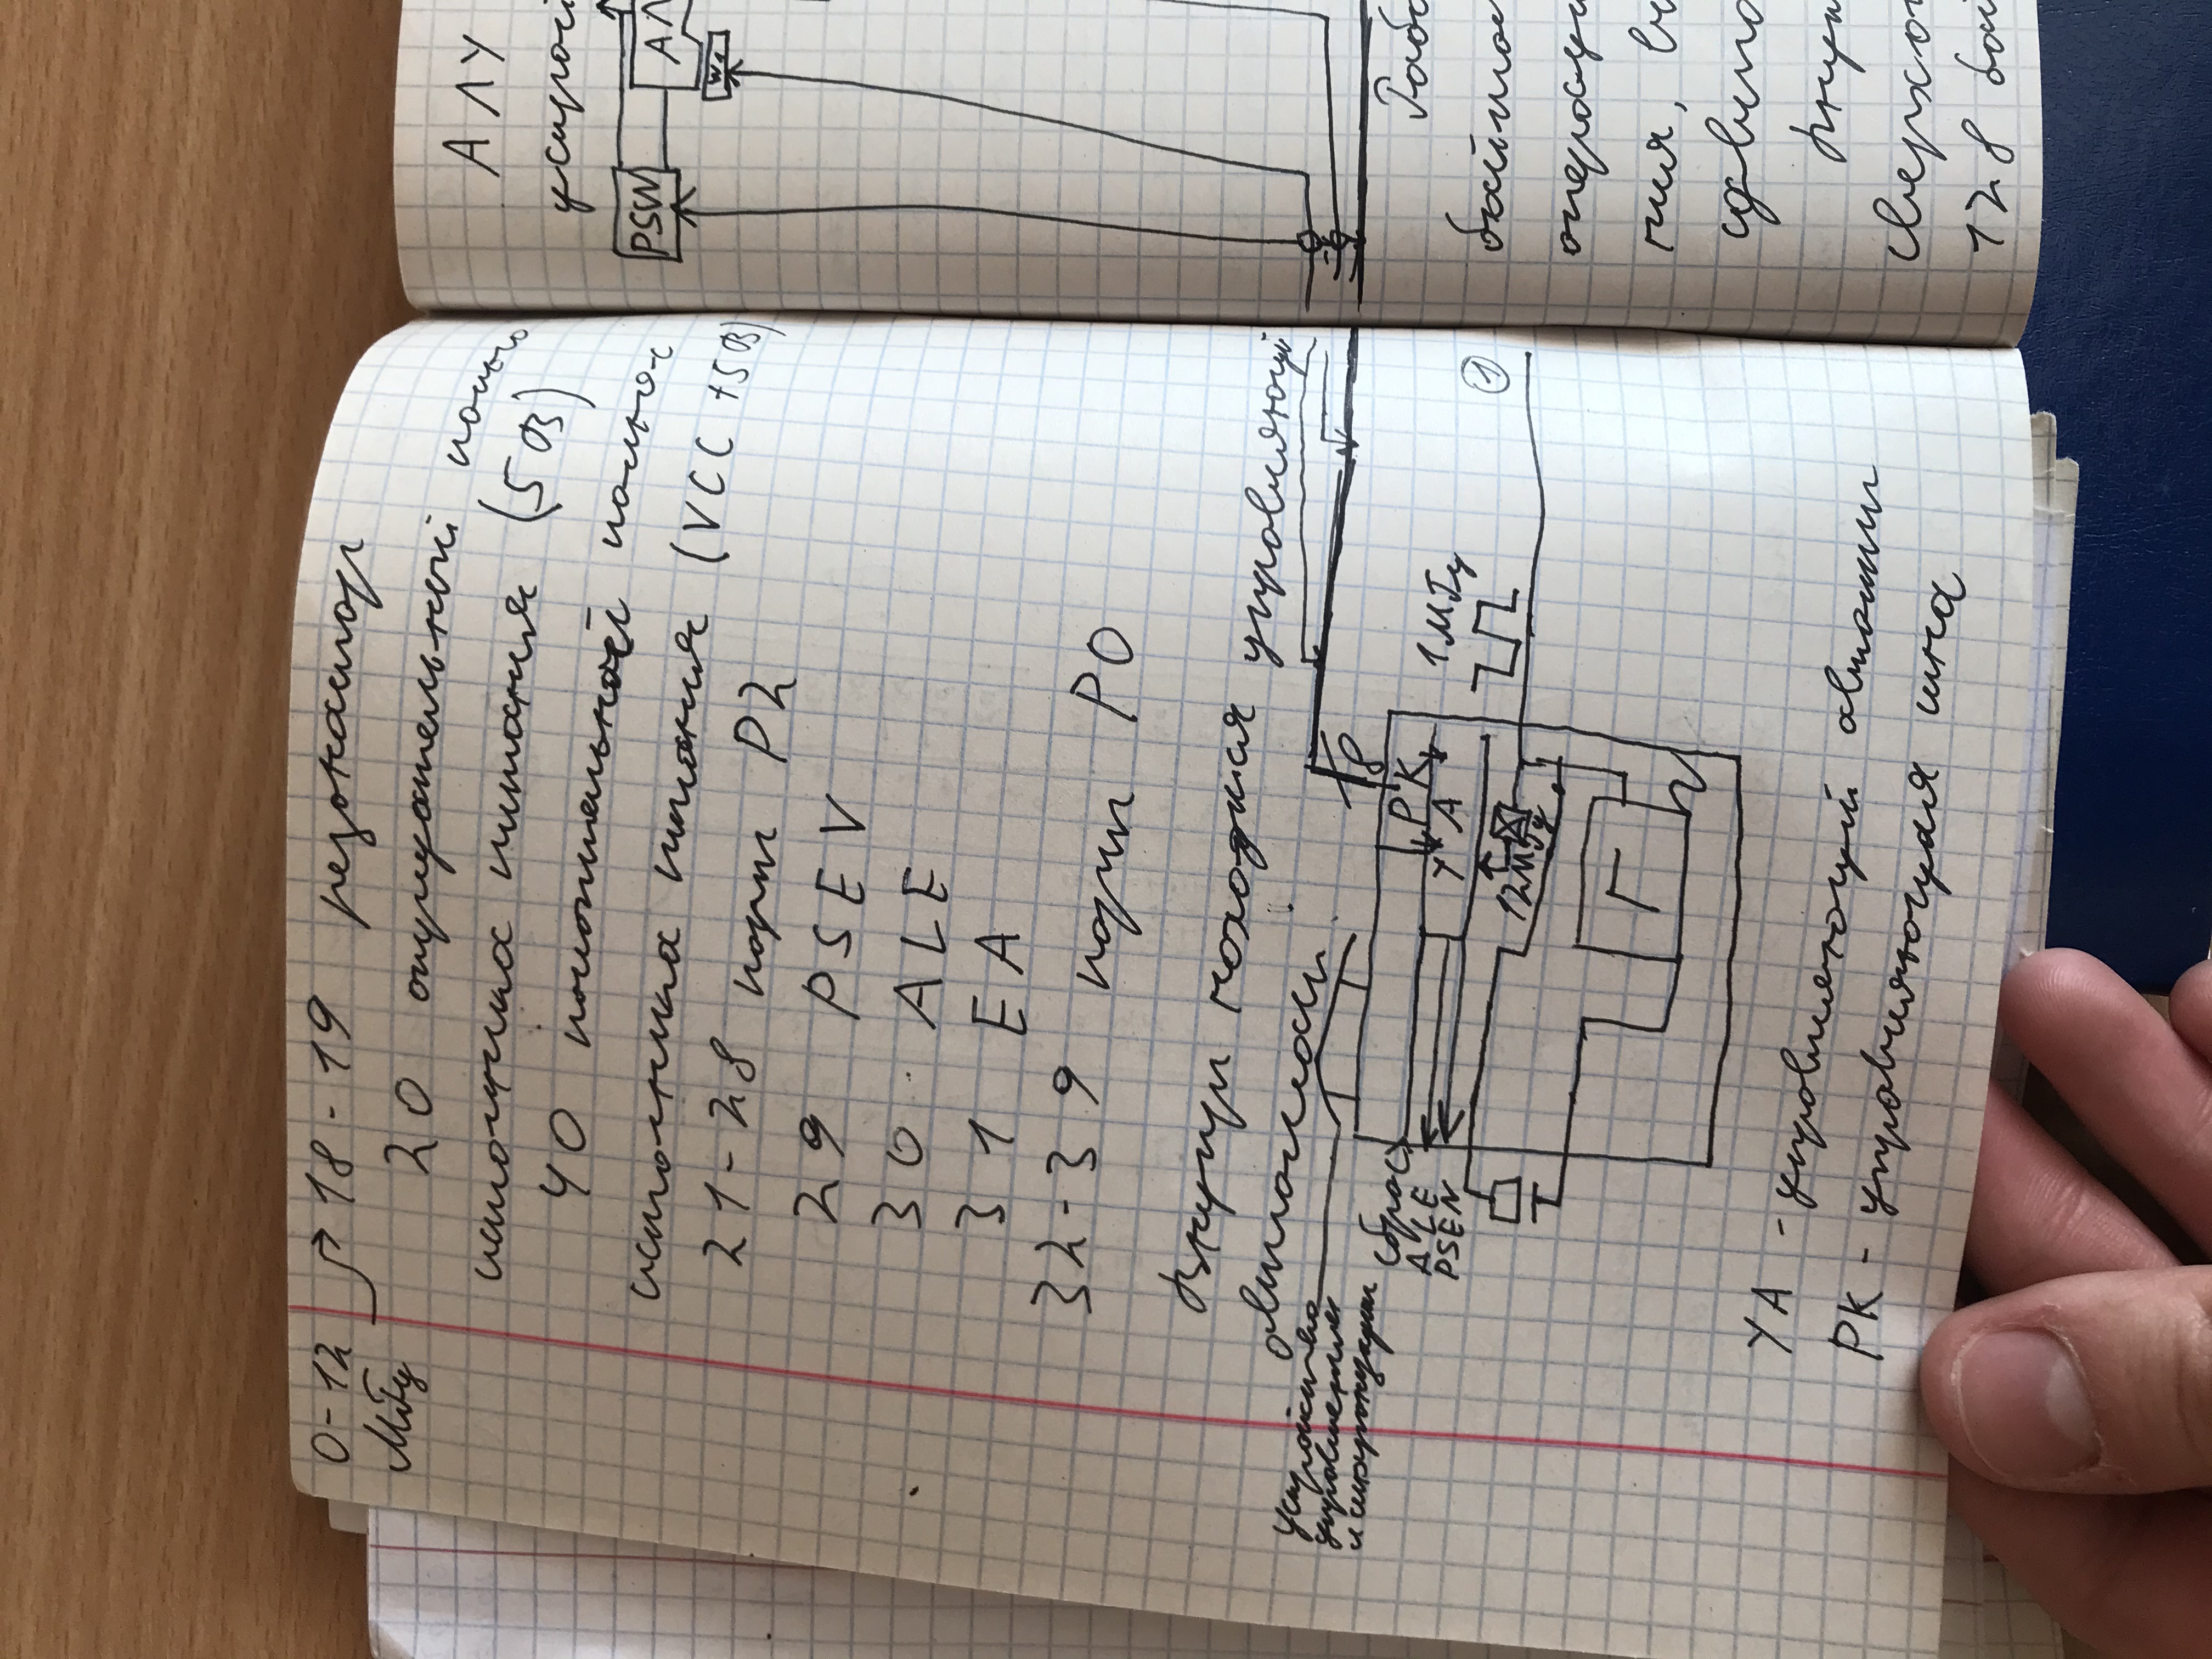 0-12 18-19 резонатор
МГц
20 отрицательный полюс
источника питания (5 В)
40 положительной полюс
источника питания (VCC +5В)
21-28 порт P2
29 PSEV
30 ALE
31 EA
32-39 порт P0
Внутри находится управляющий
автомат
устройство
управления
и синхронизации
8
сброс
ALE
PSEN
РК
УА
1 МГц
12МГц
1
Г
УА - управляющий автомат
РК - управляющая шина
АЛУ
PSW
Рабо
байто
операци
ния, вы
сдвига
Внут
сверхо
128 бай